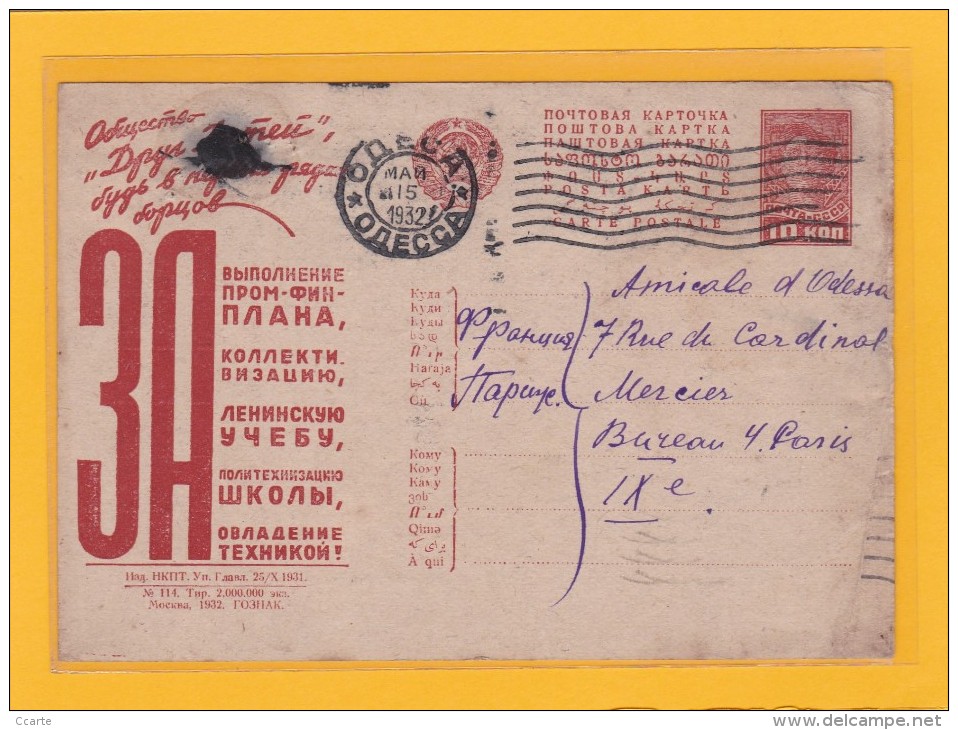 Общество
"Друг детей",
будь в первых рядах
борцов
ЗА
ВЫПОЛНЕНИЕ
ПРОМ-ФИН-
ПЛАНА,
КОЛЛЕКТИ-
ВИЗАЦИЮ,
ЛЕНИНСКУЮ
УЧЕБУ,
ПОЛИТЕХНИЗАЦИЮ
ШКОЛЫ,
ОВЛАДЕНИЕ
ТЕХНИКОЙ!
Изд. НКПТ. Уп. Главл. 25/X 1931.
№ 114. Тир. 2.000.000 экз.
Москва, 1932. ГОЗНАК.
ОДЕСА
МАЙ
15
1932
ОДЕССА
ПОЧТОВАЯ КАРТОЧКА
ПОШТОВА КАРТКА
ПАШТОВАЯ КАРТКА
POSTA KARTЕ
CARTE POSTALE
ПОЧТА СССР
10 КОП
Куда
Куди
Куды
Haraja
Où
Кому
Кому
Каму
Qimə
À qui
Франция
Париж.
Amicale d'Odessa
7 Rue du Cardinal
Mercier
Bureau 4. Paris
IXe.
Ccarte
www.delcampe.net